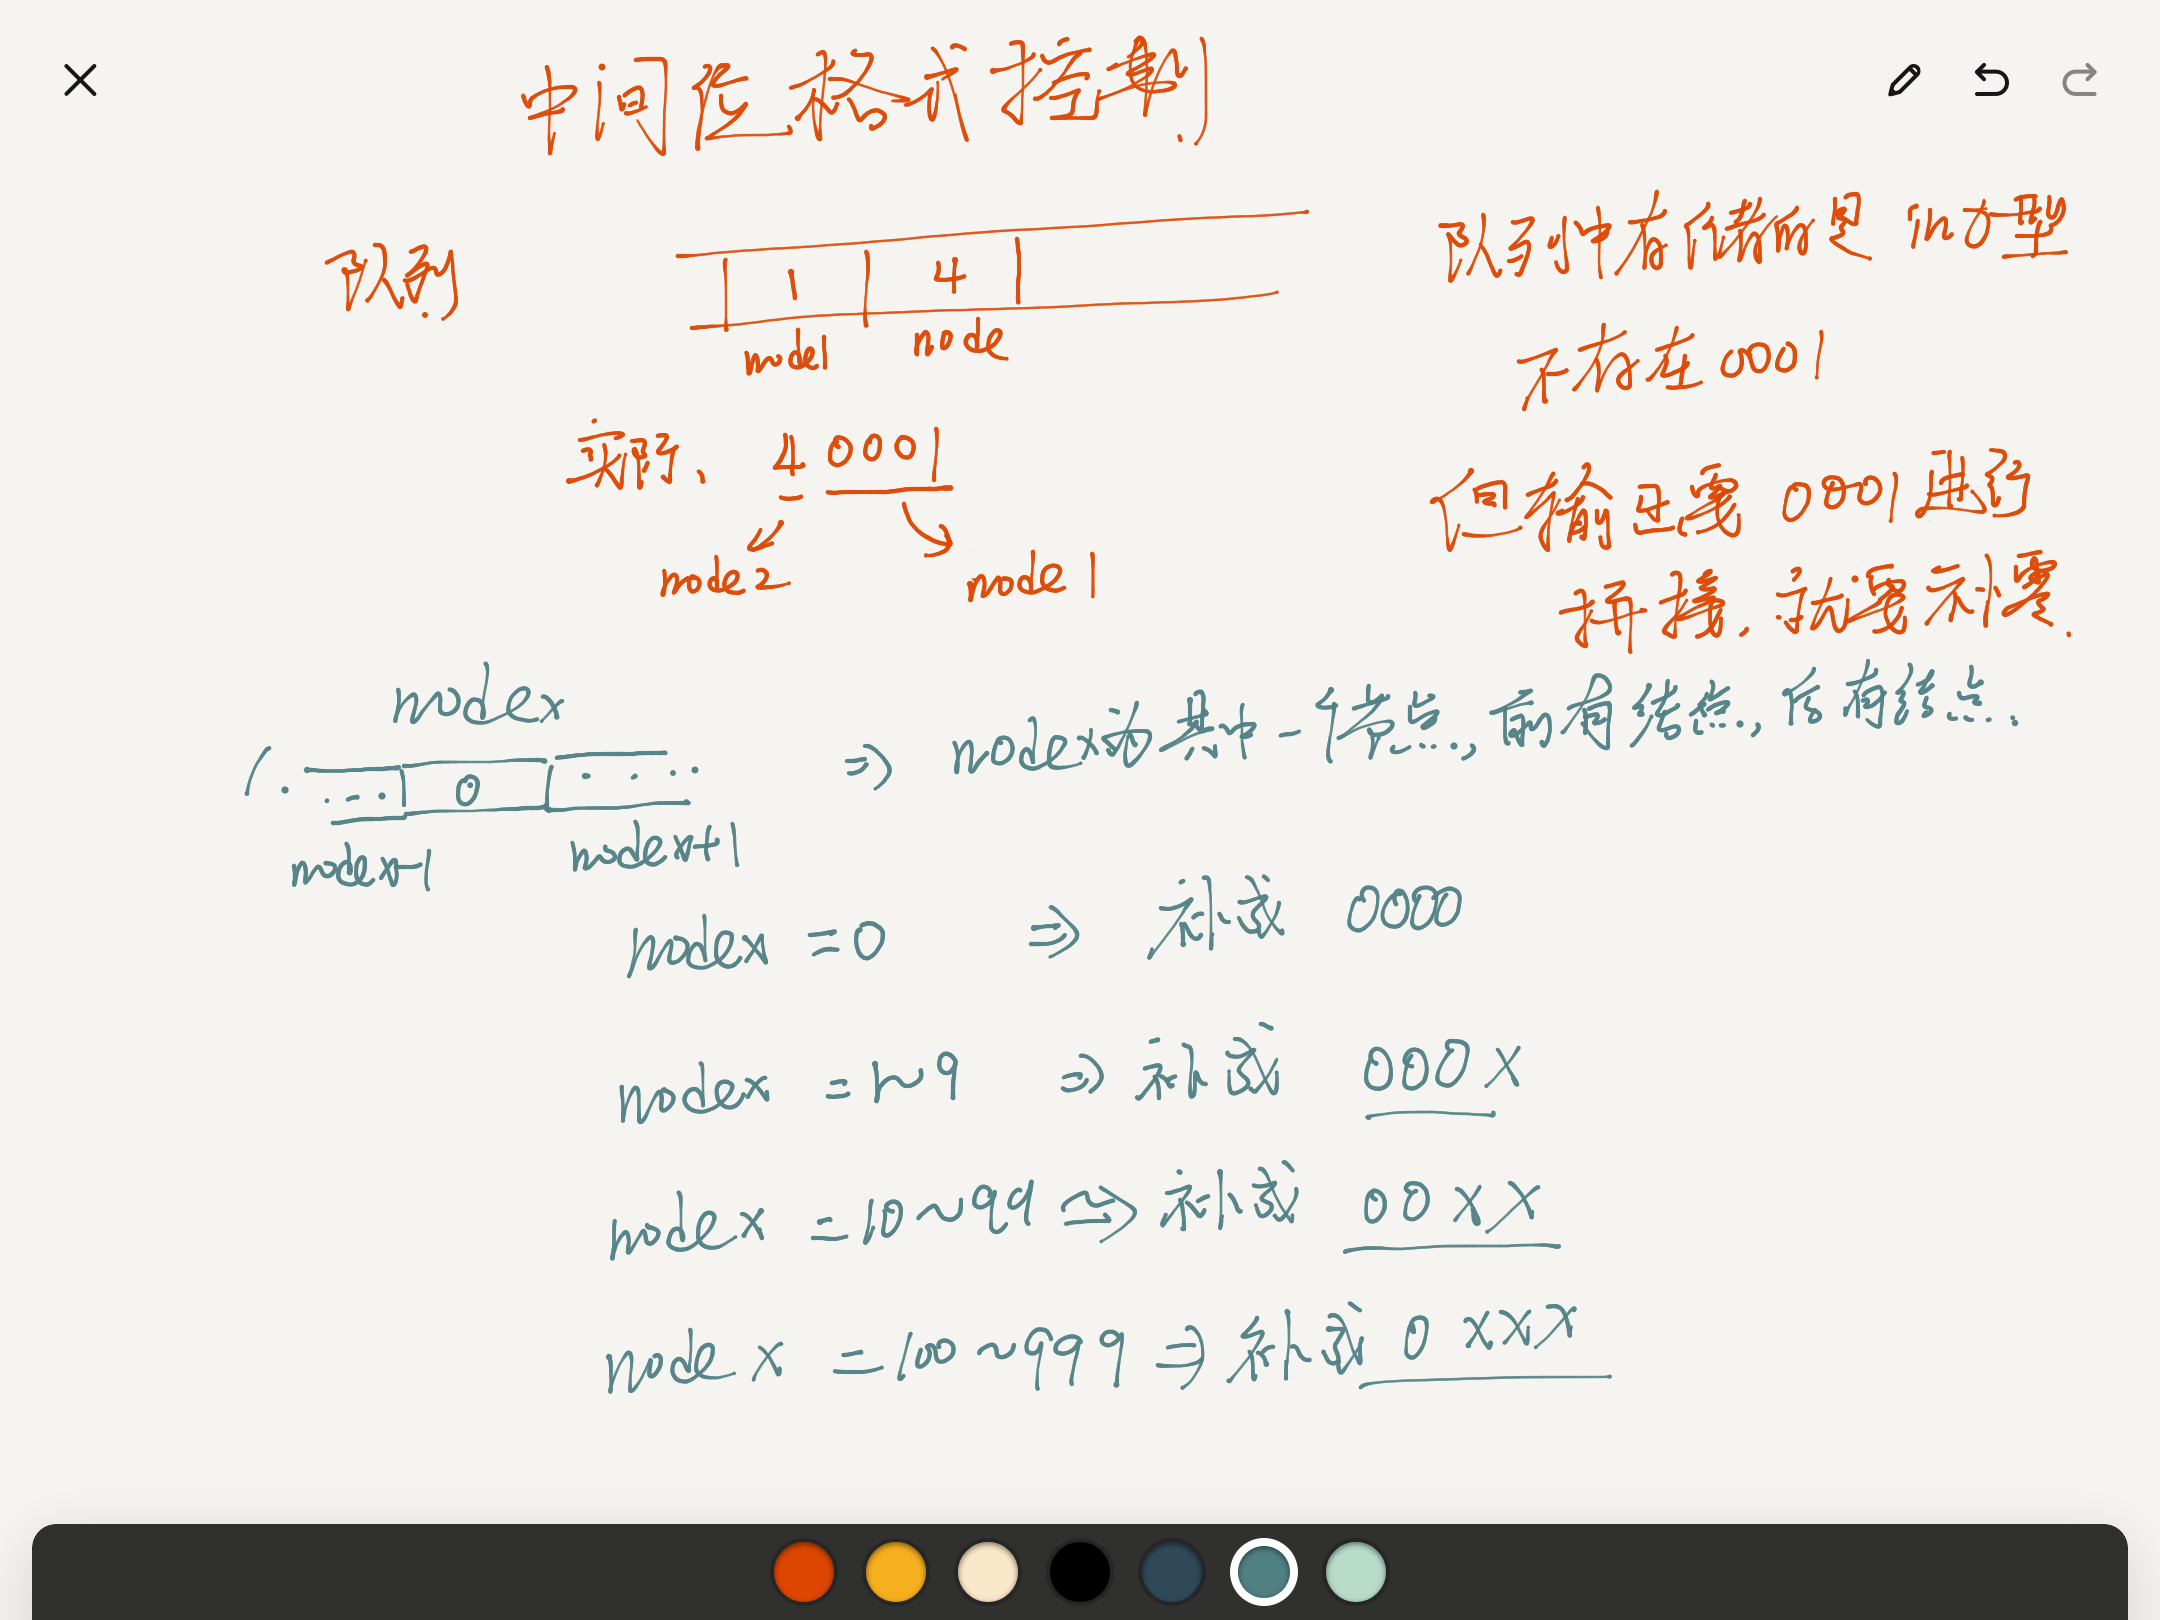 中间位格式控制
队列
1 4
node1 node
队列中存储的是int型
不存在0001
实际、4 0001
node2 node1
但输出需0001进行
拼接.就需补零.
nodex
0
nodex-1 nodex+1
=> nodex为其中一个节点,前有结点,后有结点.
nodex =0 => 补成 0000
nodex =1~9 => 补成 000X
nodex =10~99 => 补成 00XX
nodex =100~999 => 补成 0XXX